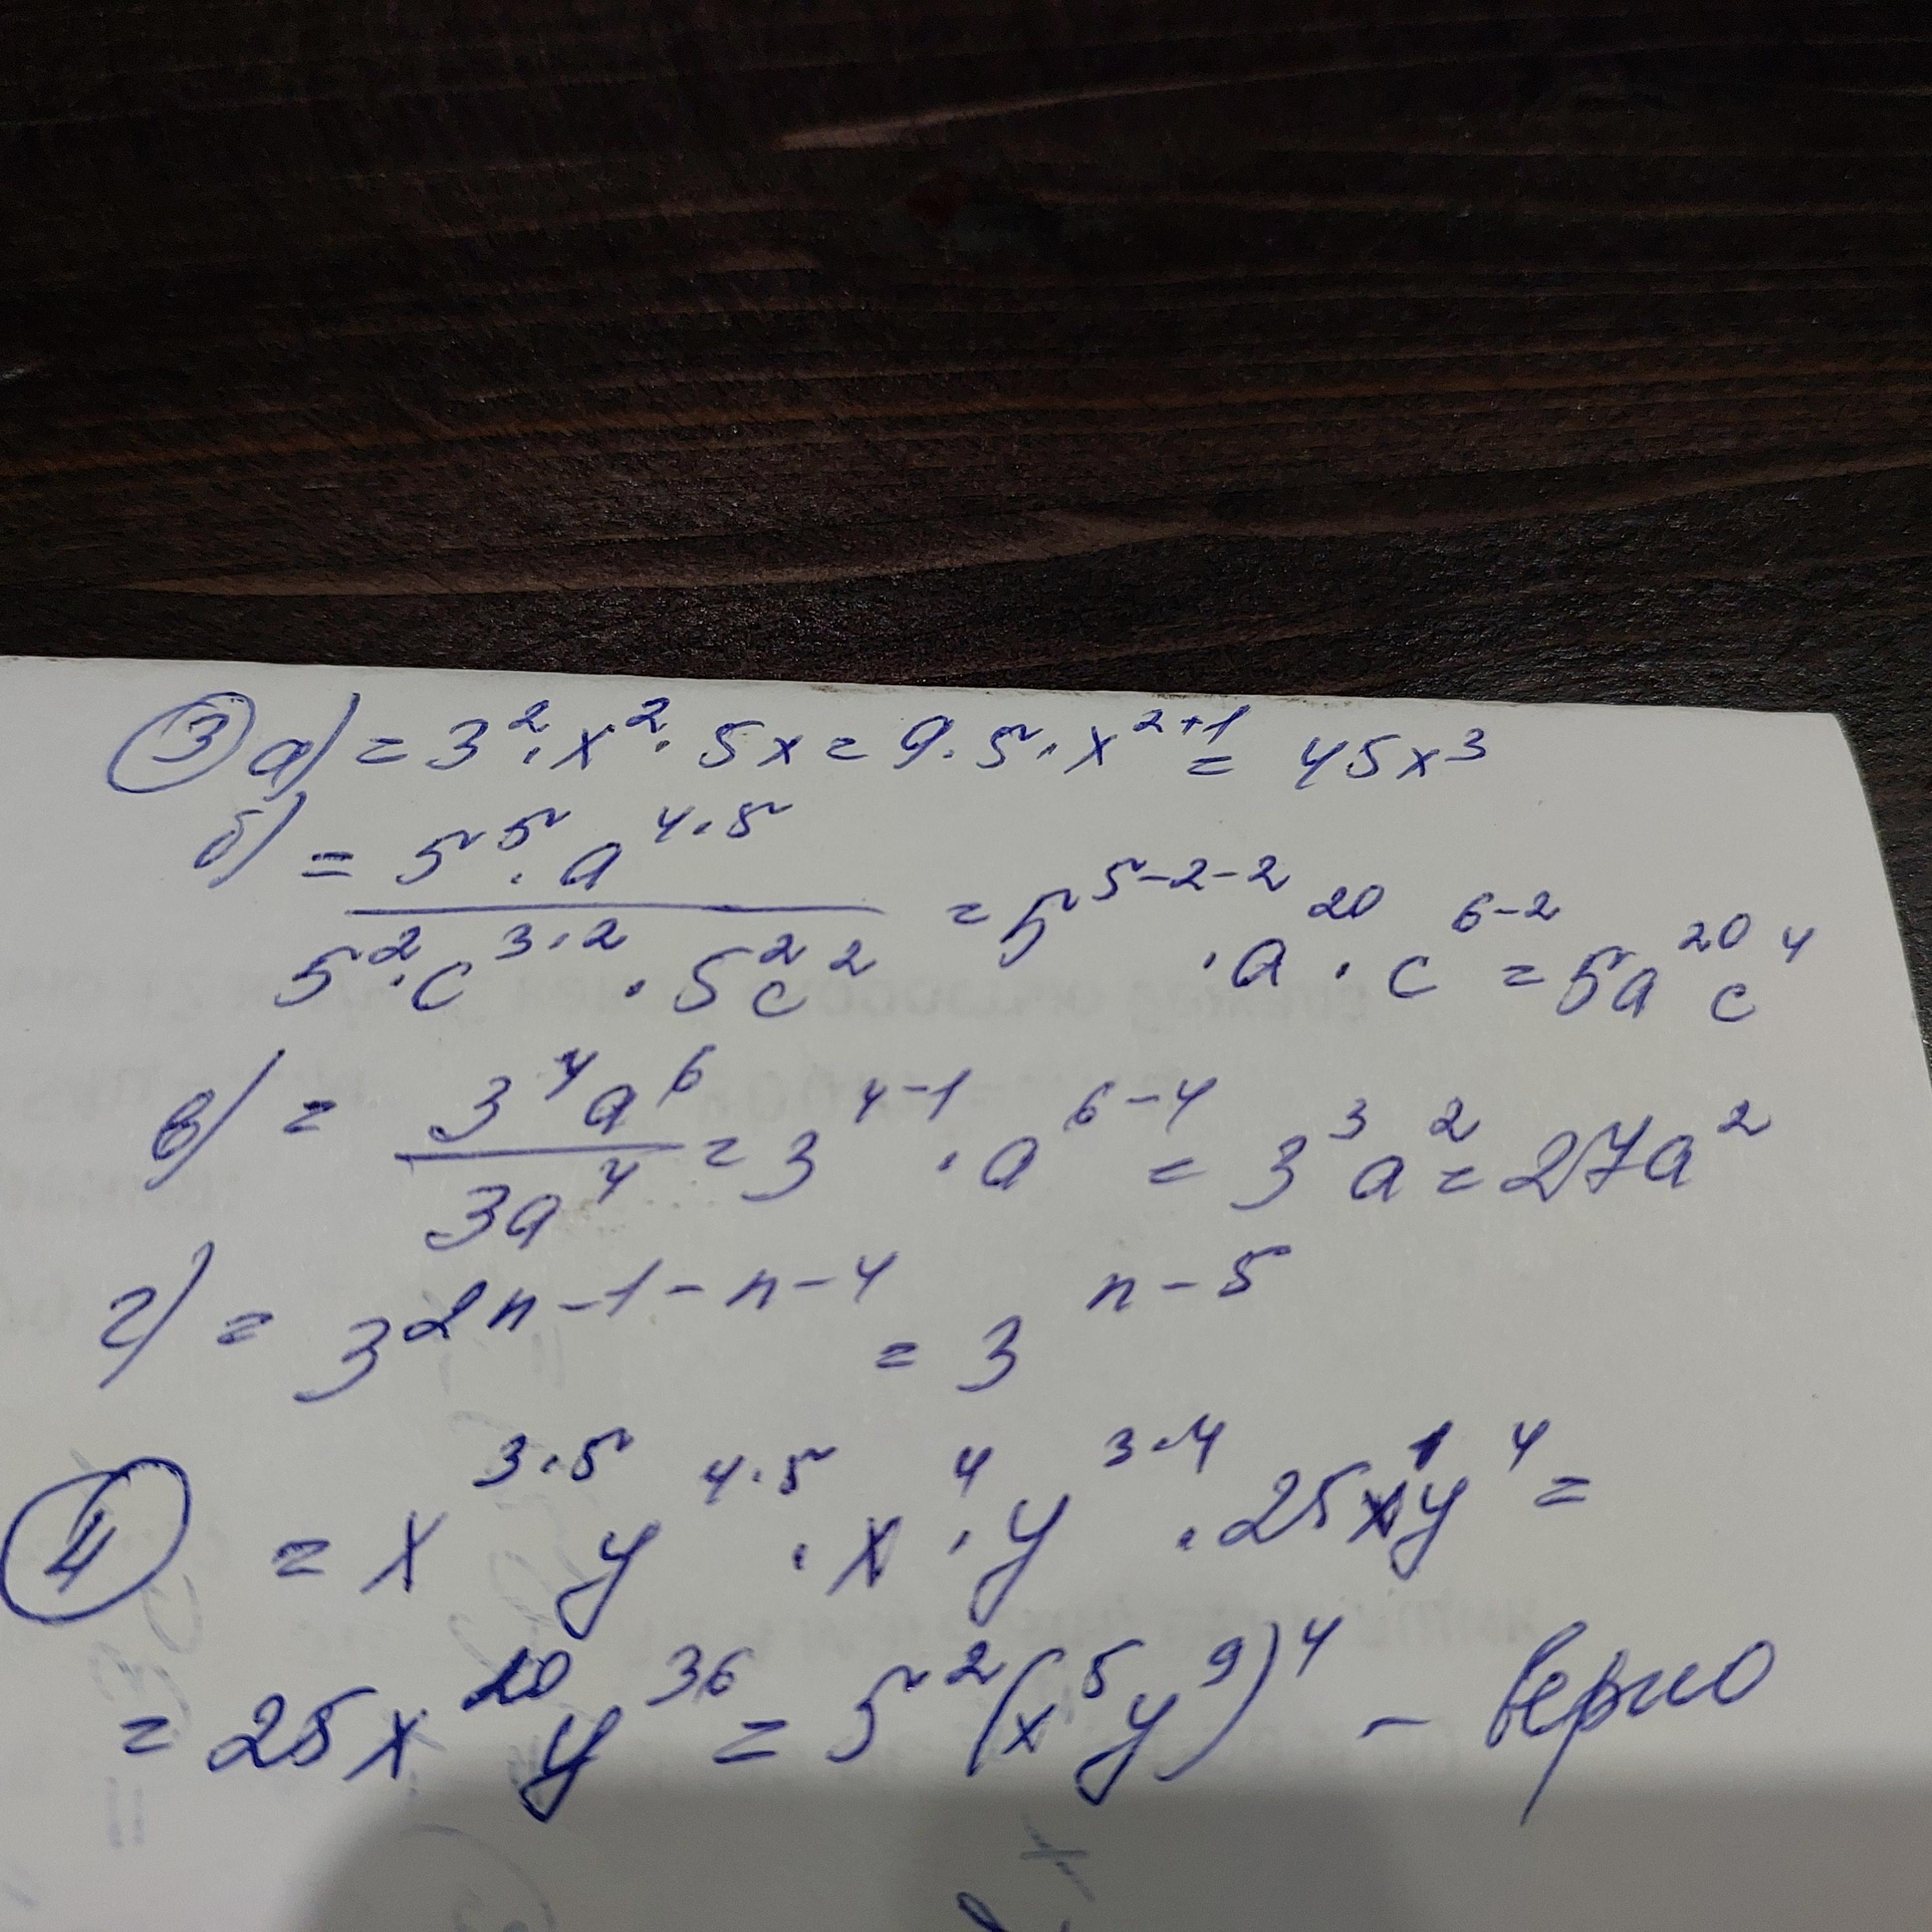 ③ а) = 3²·x²·5x = 9·5·x²⁺¹ = 45x³
б) = (5⁵·a⁴·⁵)/(5²·c³·²·5²c²) = 5⁵⁻²⁻²·a²⁰·c⁶⁻² = 5a²⁰c⁴
в) = (3⁴a⁶)/(3a⁴) = 3⁴⁻¹·a⁶⁻⁴ = 3³a² = 27a²
г) = 3²ⁿ⁻¹⁻ⁿ⁻⁴ = 3ⁿ⁻⁵
④ = x³·⁵y⁴·⁵·x⁴·y³·⁴·25x¹y⁴ =
= 25x²⁰y³⁶ = 5²(x⁵y⁹)⁴ – верно